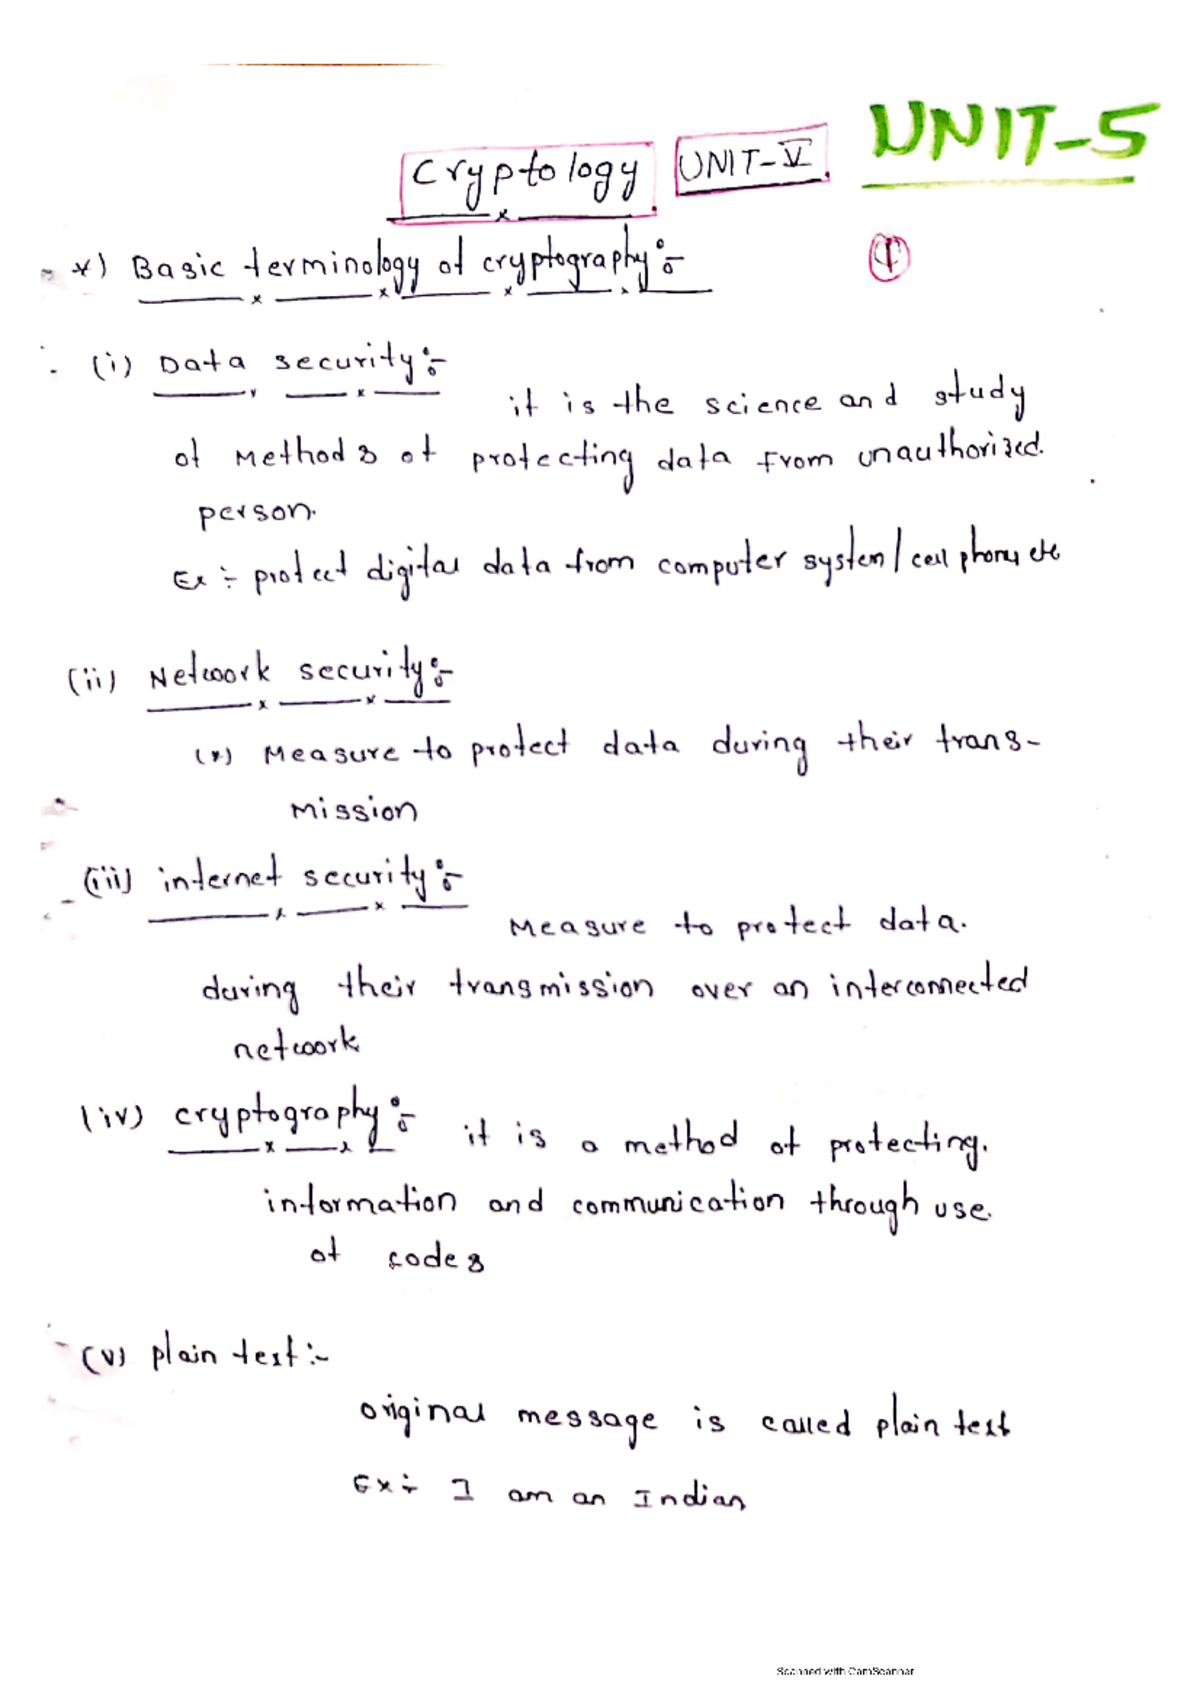 UNIT-5
Cryptology UNIT-V
*) Basic terminology of cryptography:-
(i) Data security:-
it is the science and study
of Methods of protecting data from unauthorized.
person.
Ex ÷ protect digital data from computer system/cell phones etc
(ii) Network security:-
(*) Measure to protect data during their trans-
mission
(iii) internet security:-
Measure to protect data.
during their transmission over an interconnected
network
(iv) cryptography:- it is a method of protecting.
information and communication through use.
of codes
(v) plain text:-
original message is called plain text
Ex÷ I am an Indian
Scanned with CamScanner